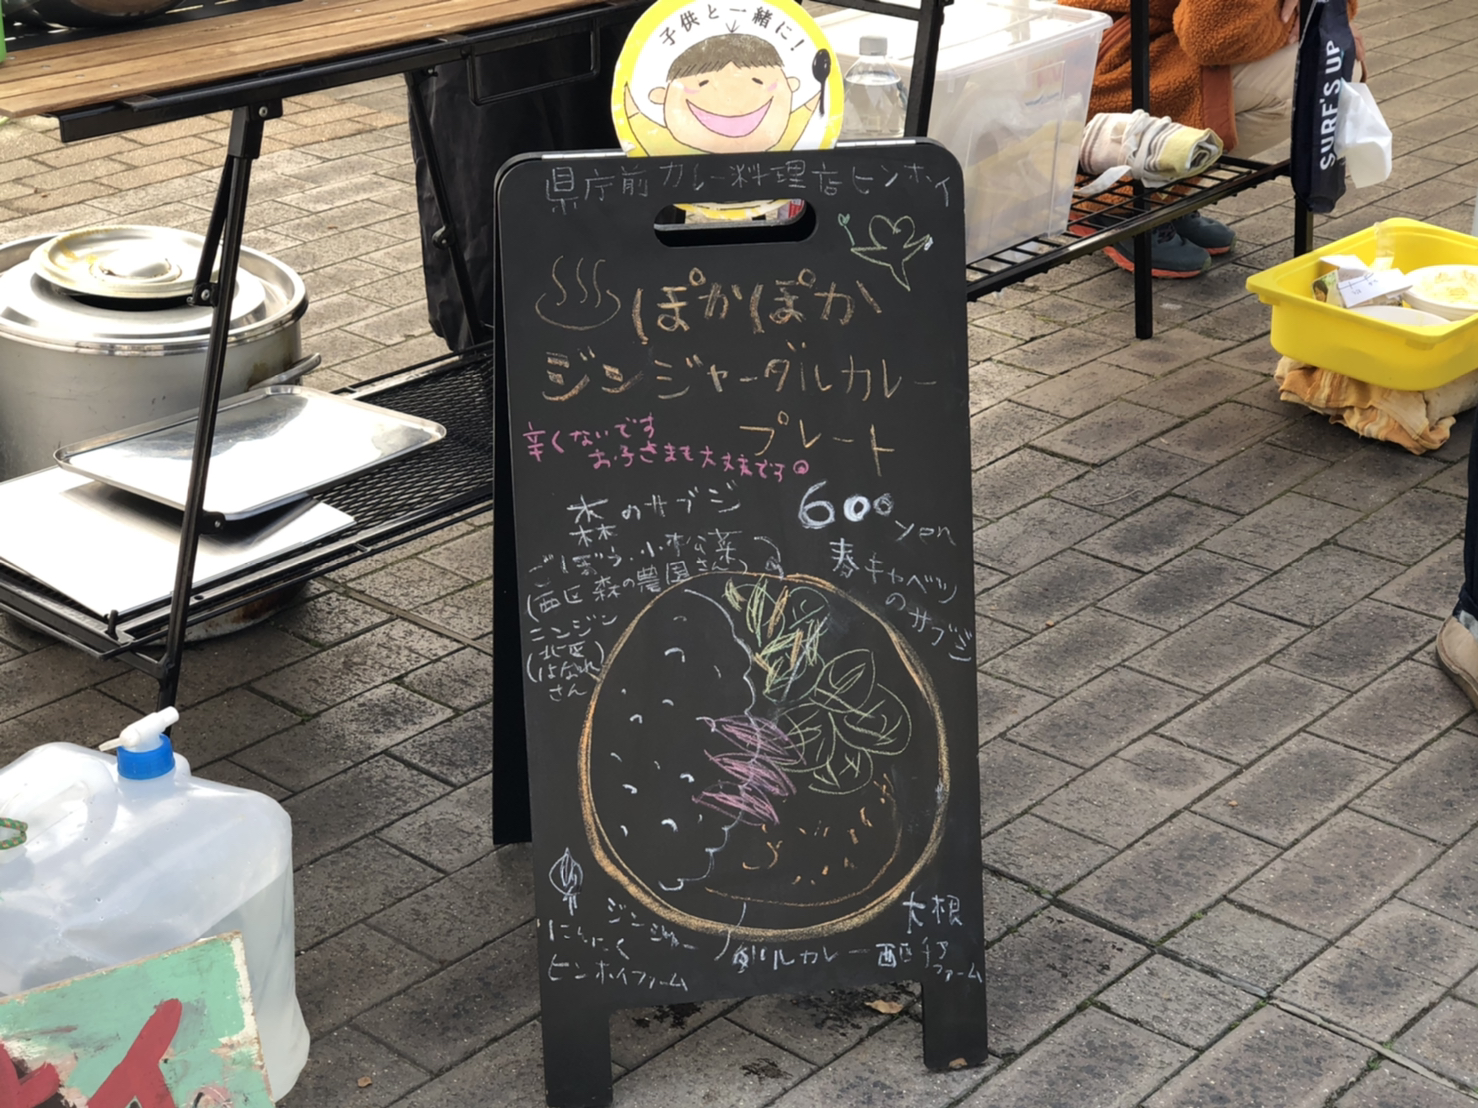 子供と一緒に!
県庁前カレー料理店ヒンホイ
ぽかぽか
ジンジャーダルカレー
プレート
辛くないです
お子さまも大丈夫です
600
yen
冬のサブジ
ごぼう・小松菜
(西区森の農園さん)
ニンジン
(北区)
(はなれ
さん
春キャベツ
のサブジ
大根
ジンジャー
にんにく
ヒンホイファーム
ダルカレー
西区
ファーム
SURF'S UP